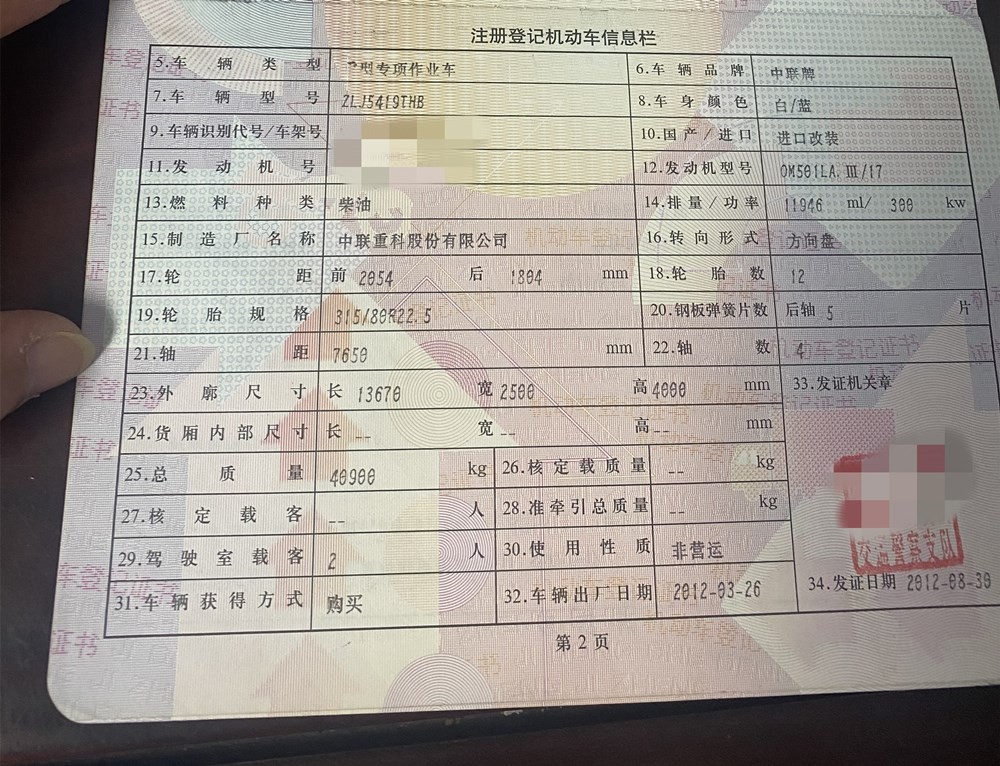 注册登记机动车信息栏
5.车辆类型 型专项作业车 6.车辆品牌 中联牌
7.车辆型号 ZLJ5419THB 8.车身颜色 白/蓝
9.车辆识别代号/车架号 10.国产/进口 进口改装
11.发动机号 12.发动机型号 OM501LA.Ⅲ/17
13.燃料种类 柴油 14.排量/功率 11946 ml/ 300 kw
15.制造厂名称 中联重科股份有限公司 16.转向形式 方向盘
17.轮距 前 2054 后 1804 mm 18.轮胎数 12
19.轮胎规格 315/80R22.5 20.钢板弹簧片数 后轴 5 片
21.轴距 7650 mm 22.轴数 4
23.外廓尺寸 长 13670 宽 2500 高 4000 mm 33.发证机关章
24.货厢内部尺寸 长 -- 宽 -- 高 -- mm
25.总质量 40900 kg 26.核定载质量 -- kg
27.核定载客 -- 人 28.准牵引总质量 -- kg
交通警察支队
29.驾驶室载客 2 人 30.使用性质 非营运
31.车辆获得方式 购买 32.车辆出厂日期 2012-03-26 34.发证日期 2012-08-30
第2页